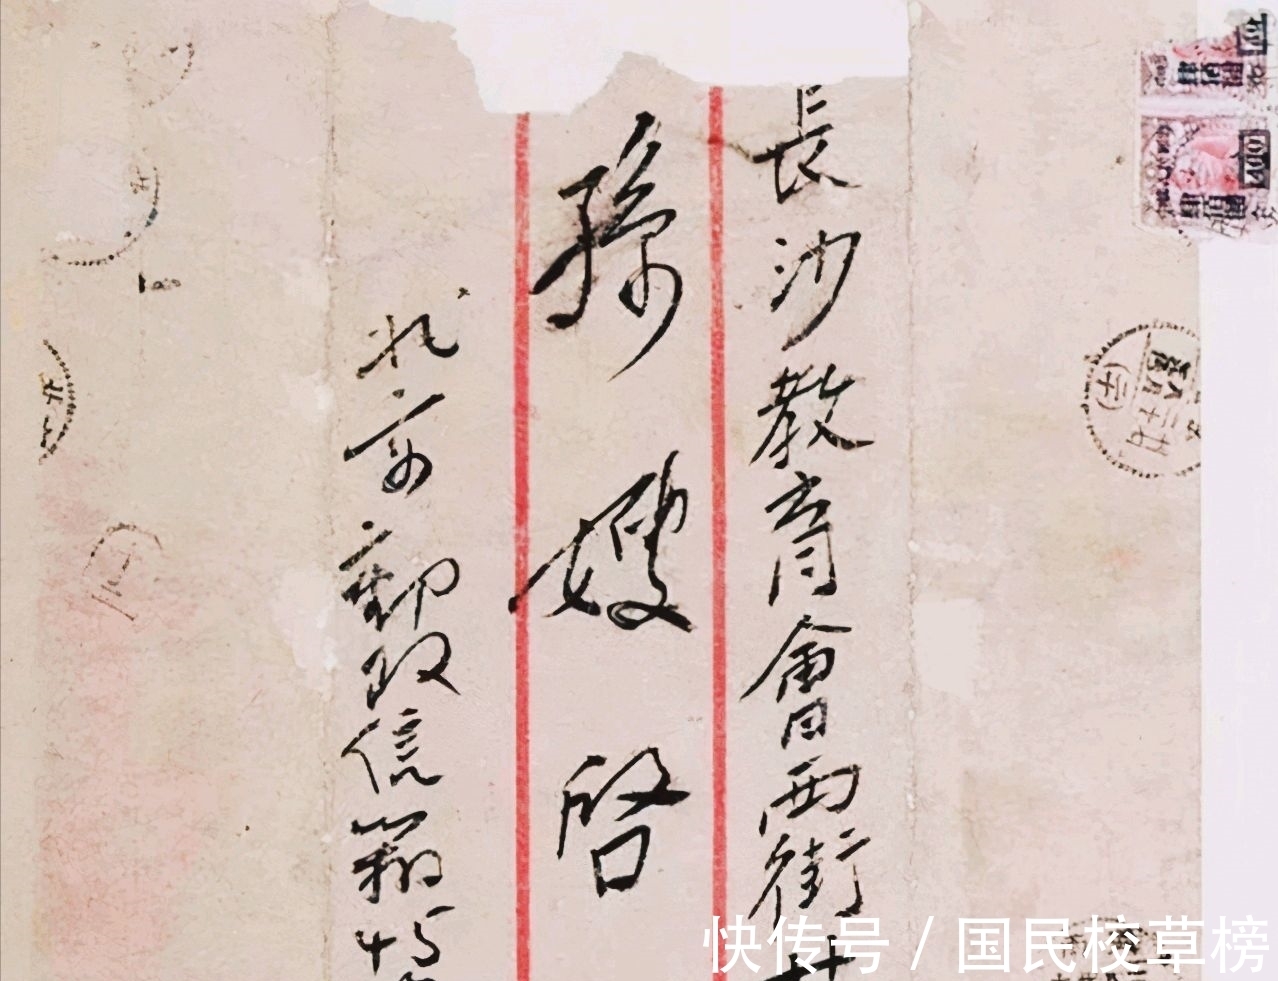 長沙教育會西街廿
孫嫂啓
北京郵政信箱
快传号 / 国民校草榜